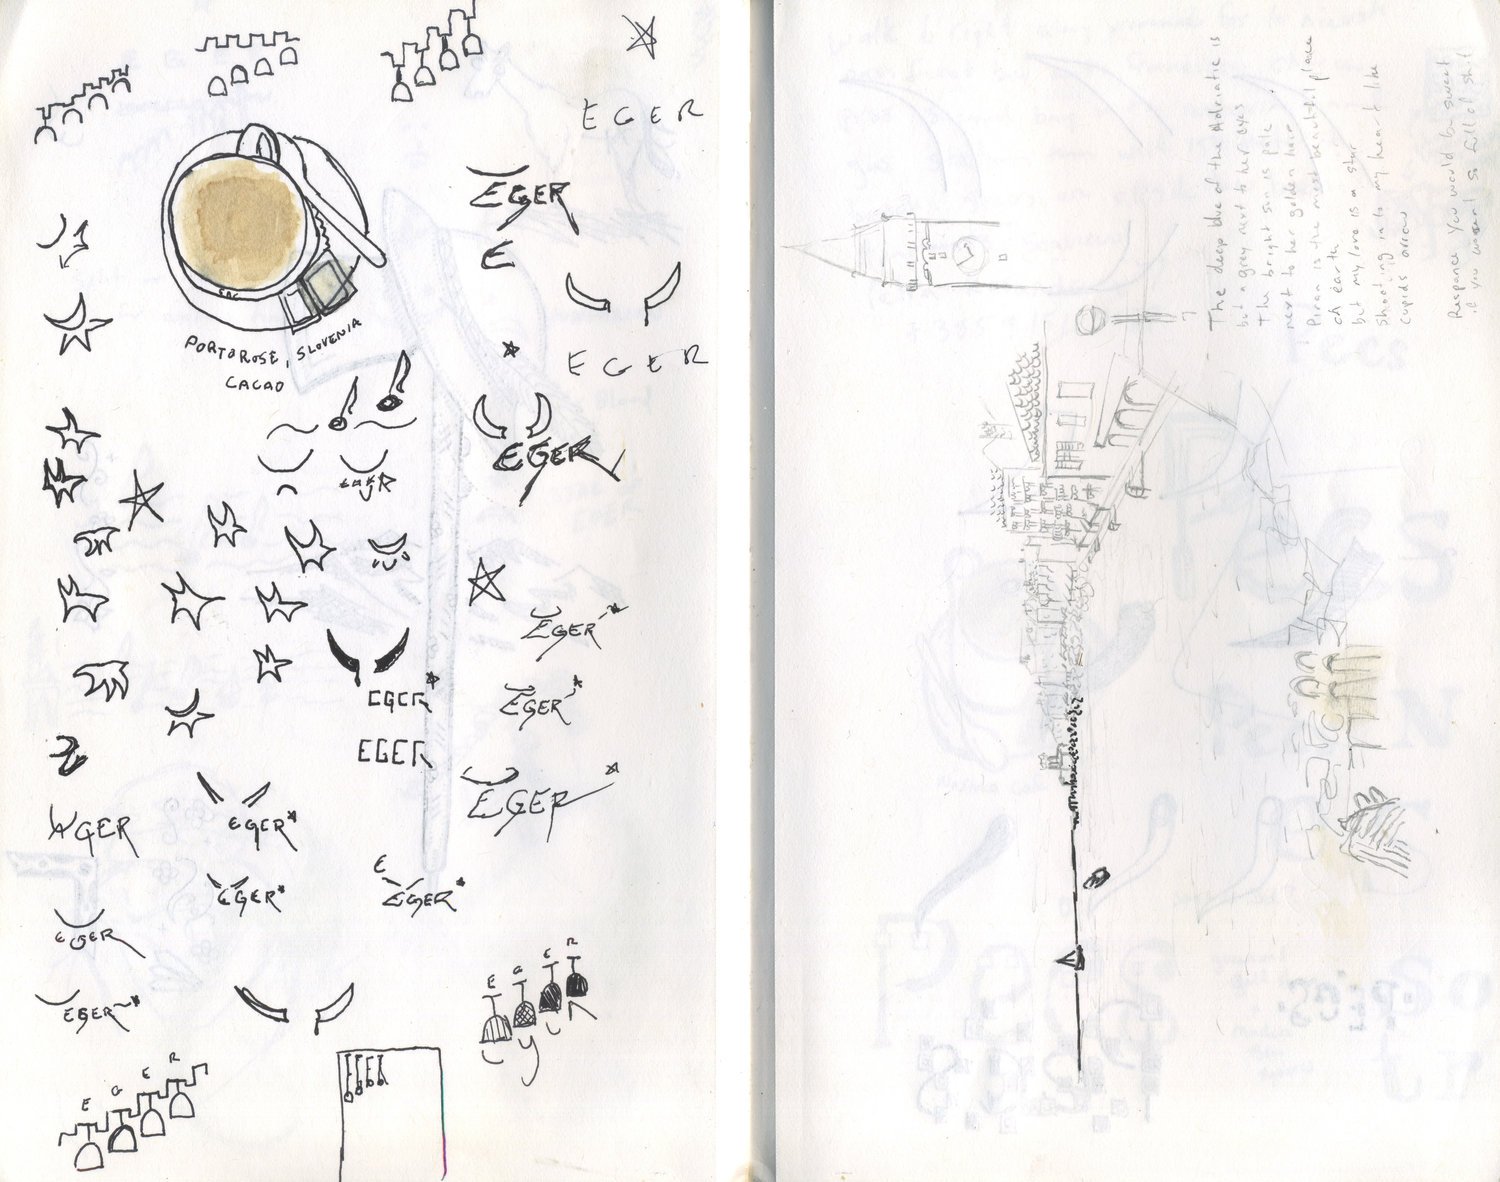 EGER
EGER
E
EGER
PORTOROSE, SLOVENIA
CACAO
EGER
EGER
EGER
EGER
EGER
EGER
EGER
EGER
EGER
E
EGER
EGER
EGER
E G E R
E G E R
The deep blue of the Adriatic is
but a grey next to her eyes
The bright sun is pale
next to her golden hair
Piran is the most beautiful place
on earth
but my love is a star
Shooting into my heart like
cupids arrow
Response You would be sweet
if you wasn't so full of shit